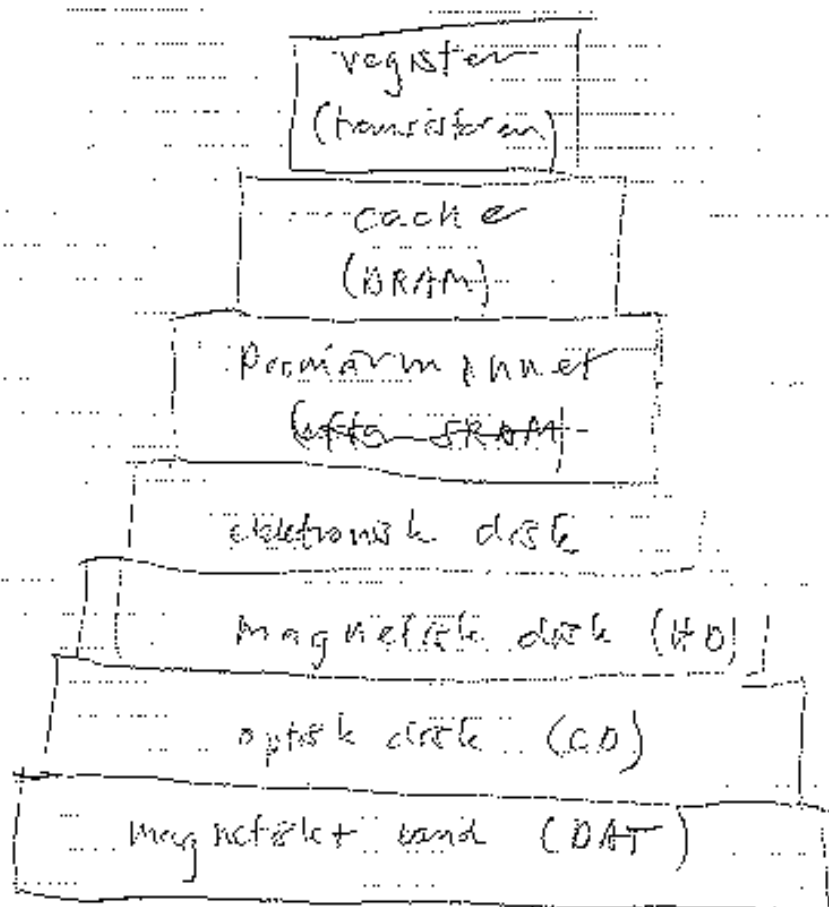 register
(transistoren)
cache
(DRAM)
Primärminnet
(ofta SRAM)
elektronisk disk
magnetisk disk (HD)
optisk disk (CD)
magnetiskt band (DAT)